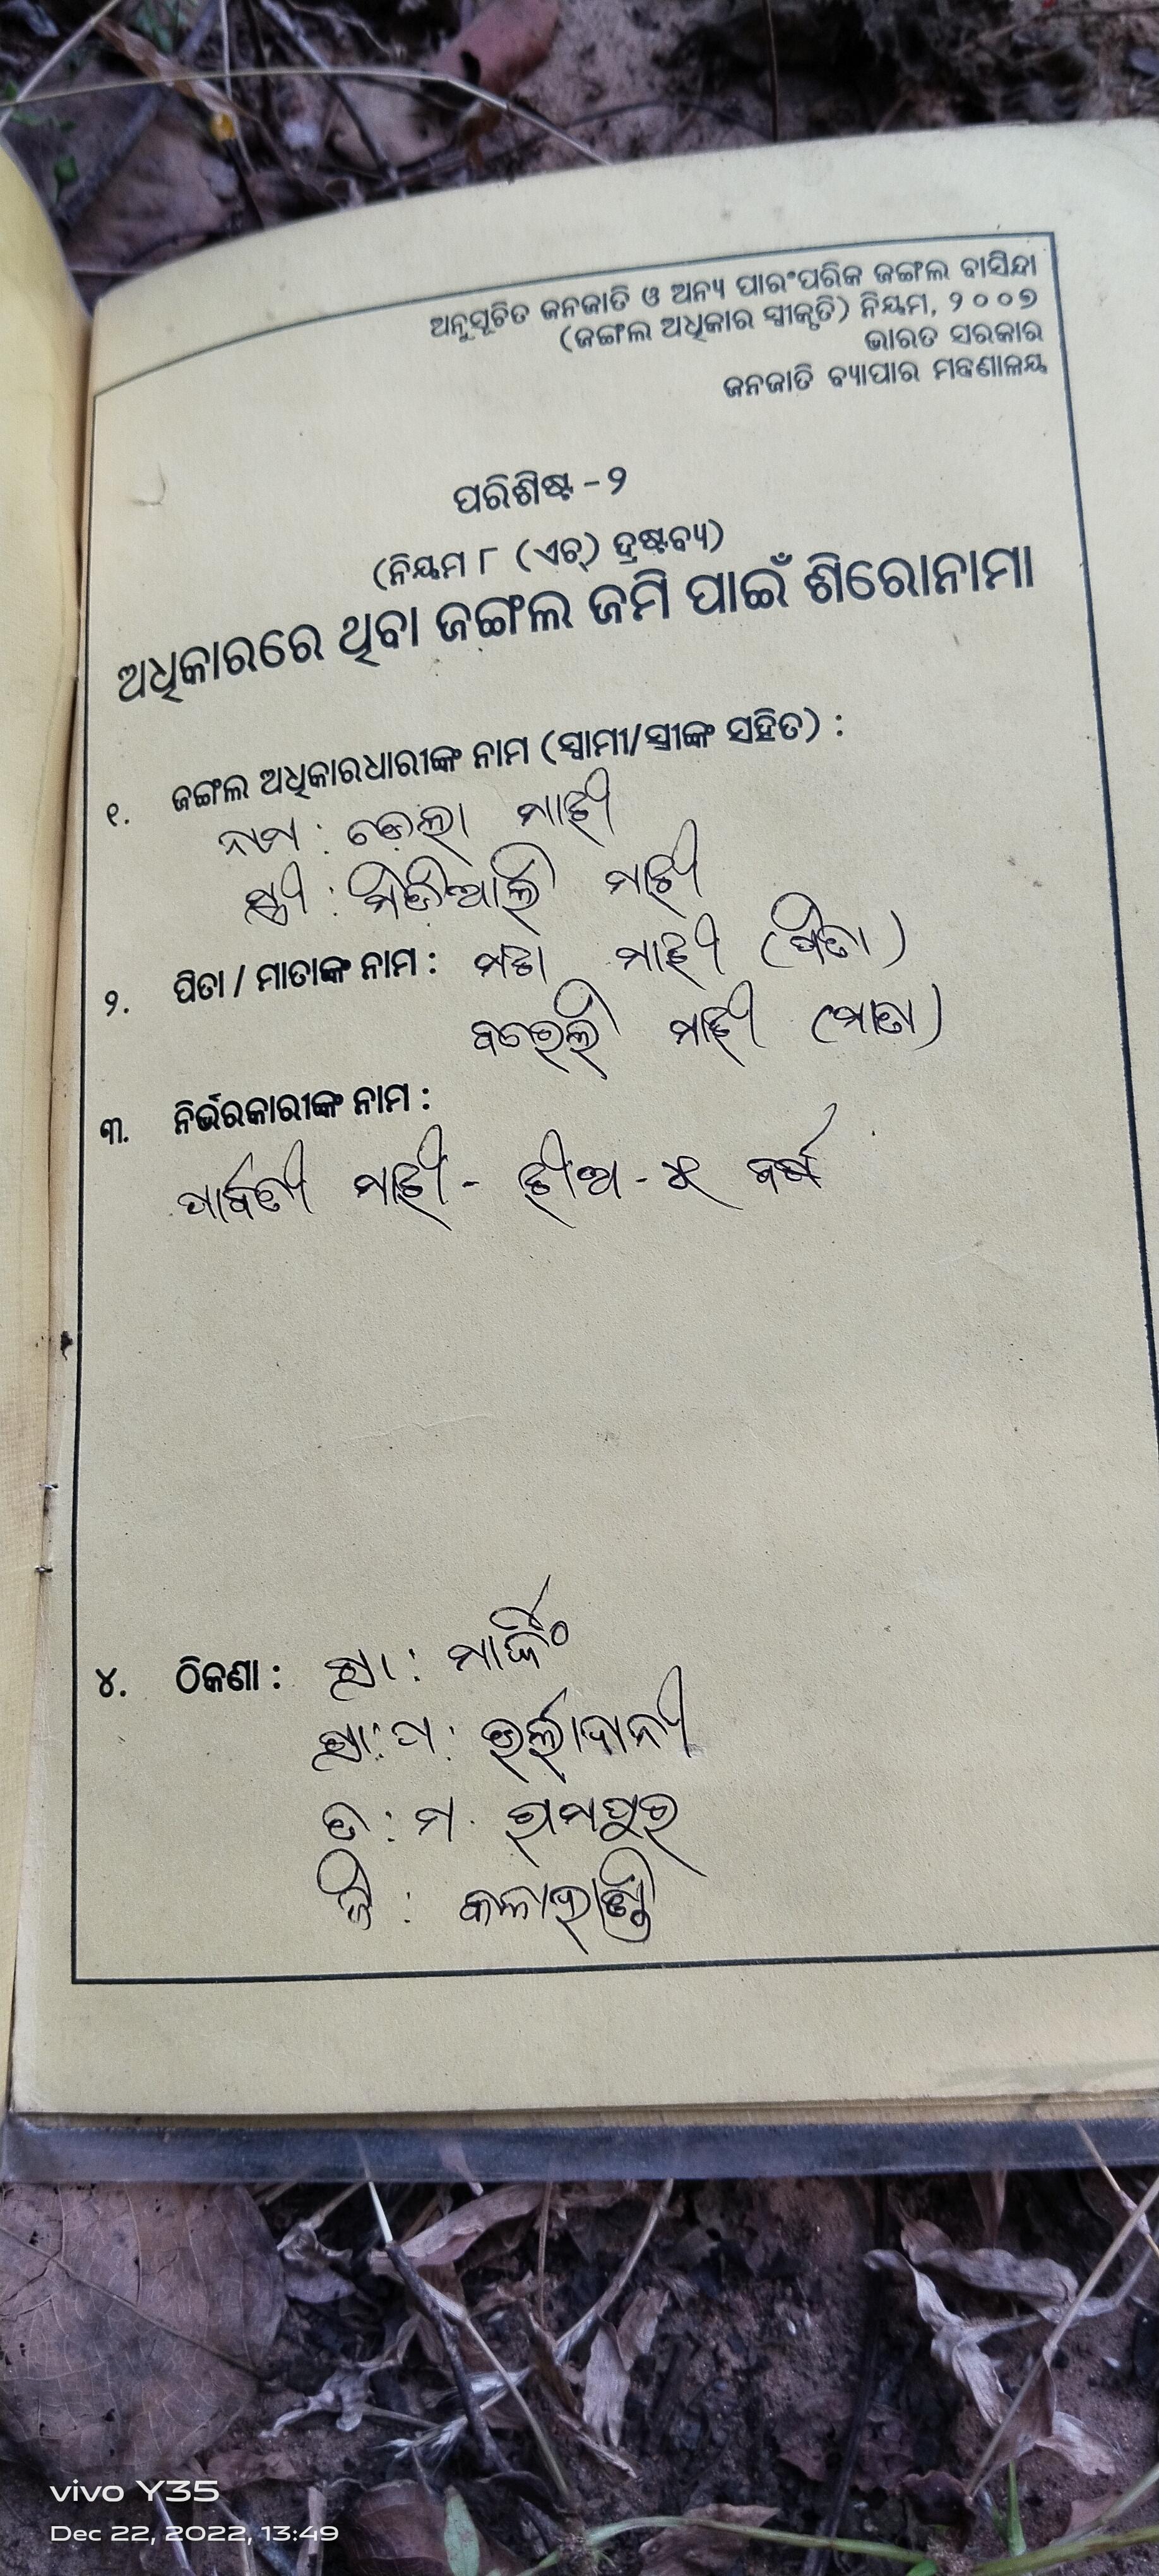 ଅନୁସୂଚିତ ଜନଜାତି ଓ ଅନ୍ୟ ପାରଂପରିକ ଜଙ୍ଗଲ ବାସିନ୍ଦା
(ଜଙ୍ଗଲ ଅଧିକାର ସ୍ୱୀକୃତି) ନିୟମ, ୨୦୦୭
ଭାରତ ସରକାର
ଜନଜାତି ବ୍ୟାପାର ମନ୍ତ୍ରଣାଳୟ
ପରିଶିଷ୍ଟ - ୨
(ନିୟମ ୮ (ଏଚ୍) ଦ୍ରଷ୍ଟବ୍ୟ)
ଅଧିକାରରେ ଥିବା ଜଙ୍ଗଲ ଜମି ପାଇଁ ଶିରୋନାମା
୧. ଜଙ୍ଗଲ ଅଧିକାରଧାରୀଙ୍କ ନାମ (ସ୍ୱାମୀ/ସ୍ତ୍ରୀଙ୍କ ସହିତ) :
ନାମ : ମାଝୀ
ସ୍ତ୍ରୀ : ମାଝୀ
୨. ପିତା / ମାତାଙ୍କ ନାମ : ମାଝୀ (ପିତା)
ମାଝୀ (ମାତା)
୩. ନିର୍ଭରକାରୀଙ୍କ ନାମ :
ପାର୍ବତୀ ମାଝୀ - ଝୀଅ - ୪ ବର୍ଷ
୪. ଠିକଣା : ଗ୍ରା :
ଗ୍ରା: ପ:
ତ : ମ. ରାମପୁର
ଜି : କଳାହାଣ୍ଡି
vivo Y35
Dec 22, 2022, 13:49